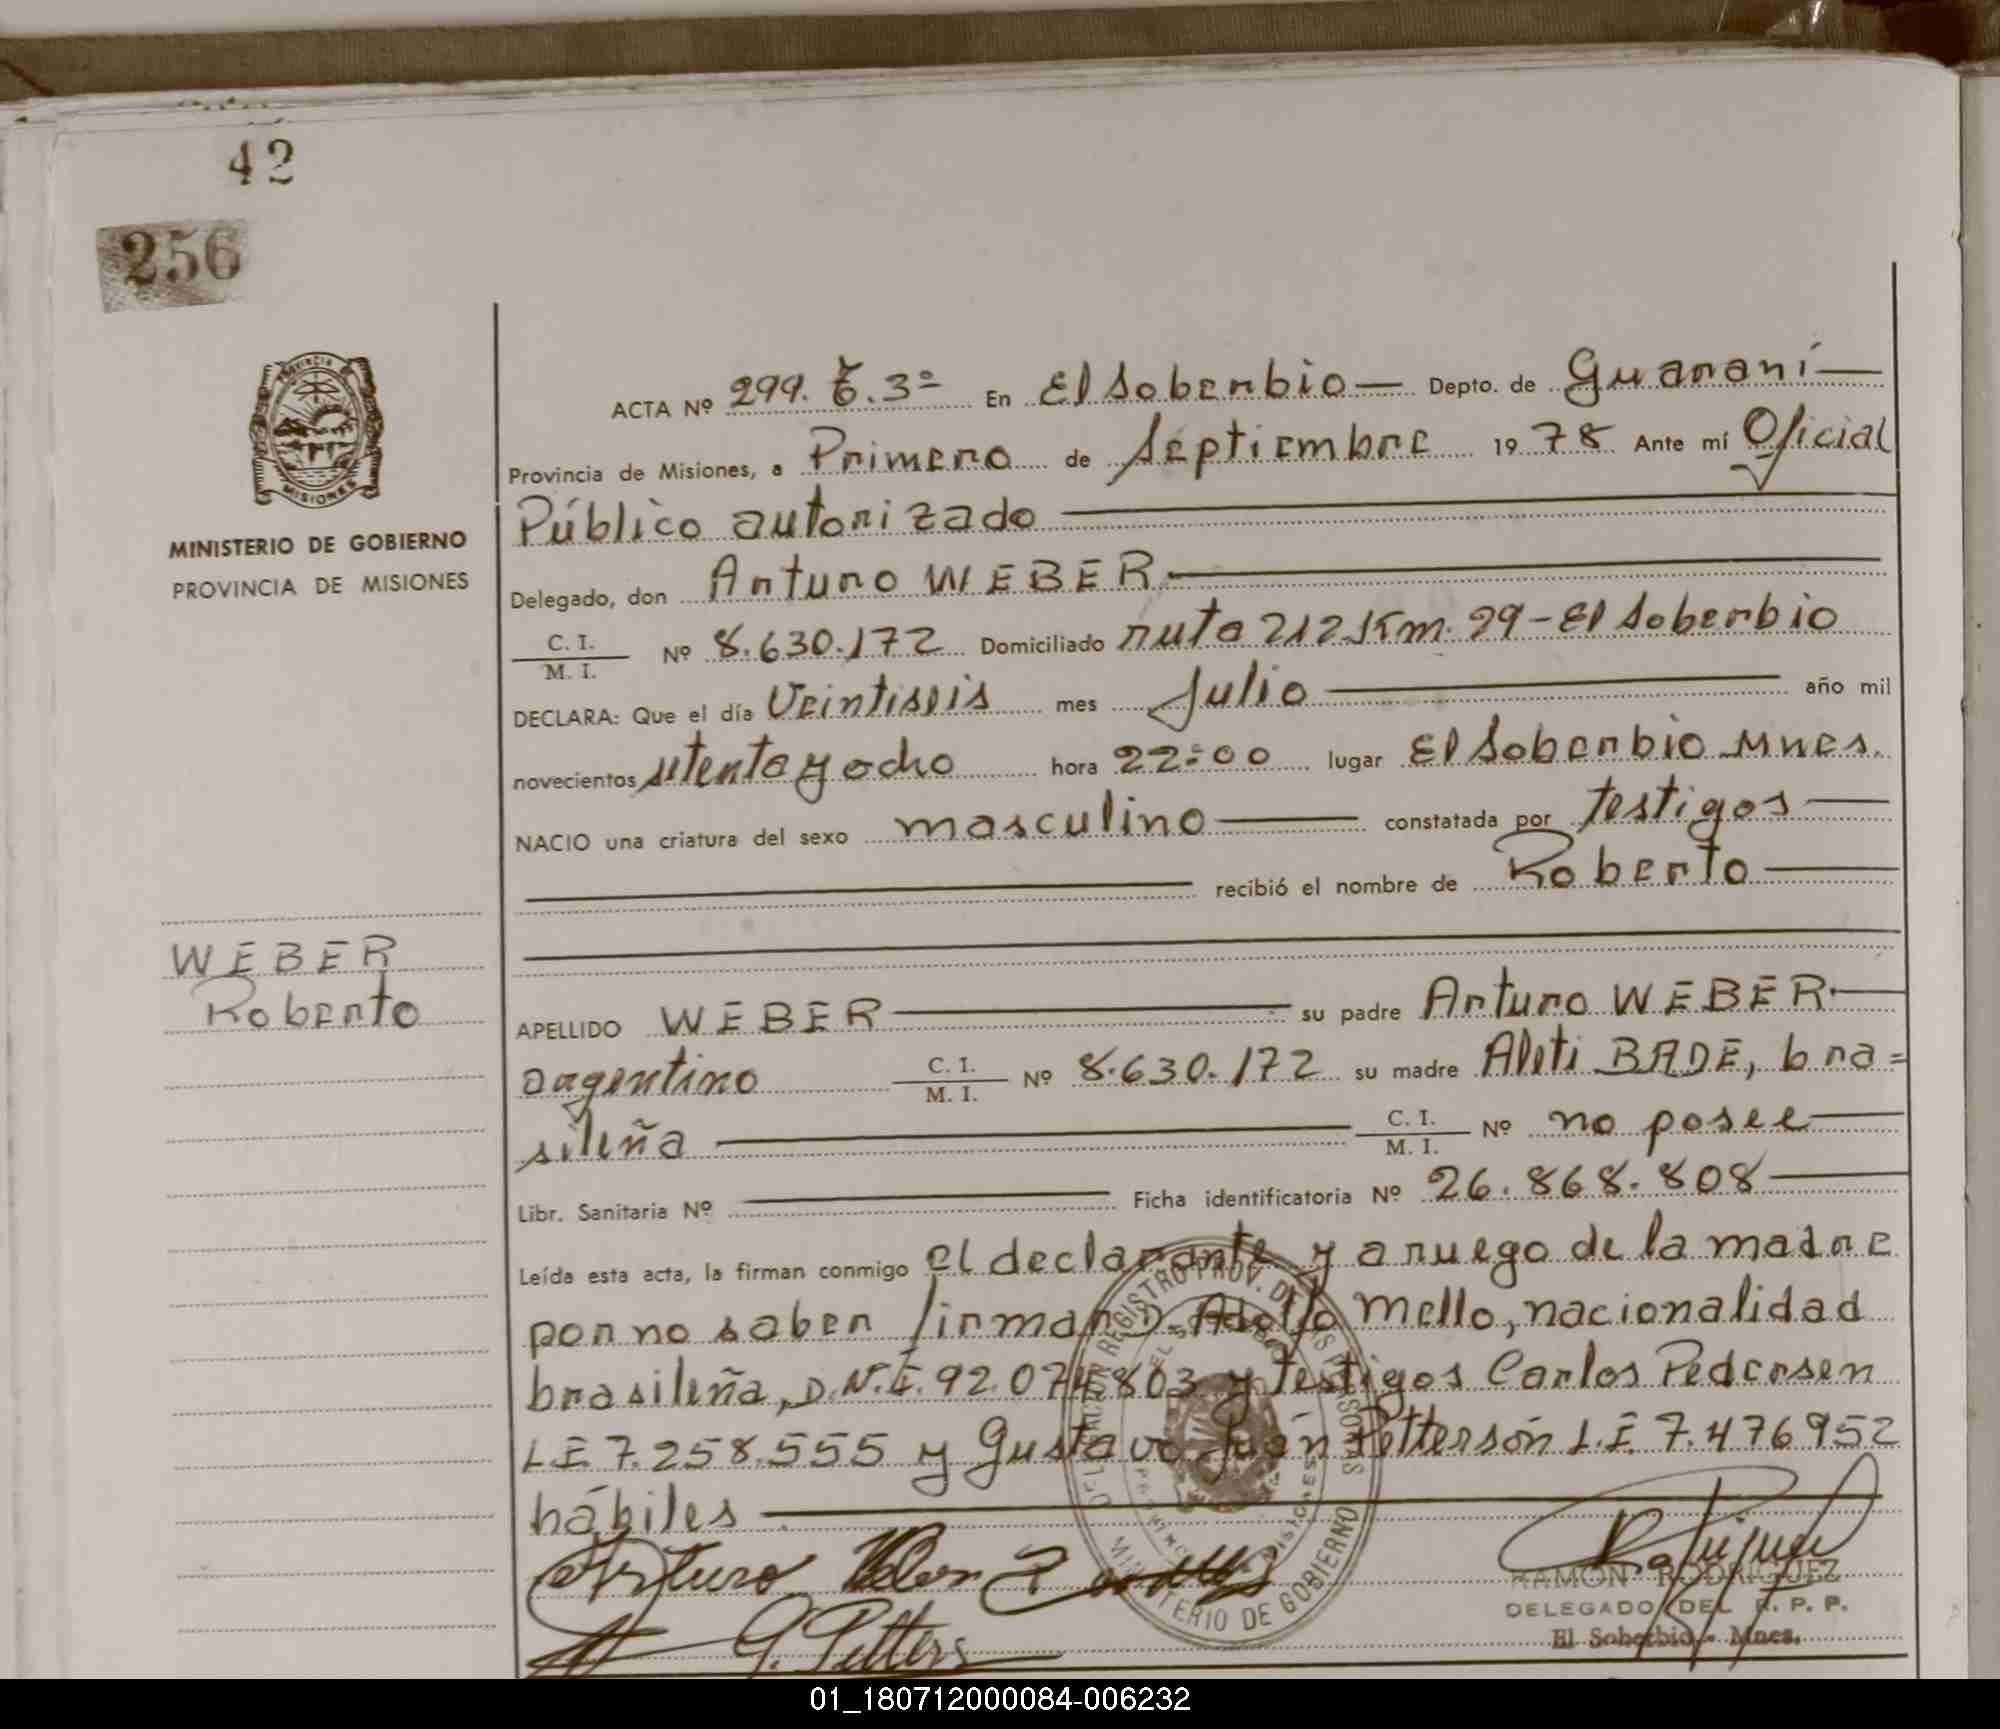 42
256
PROVINCIA
MISIONES
MINISTERIO DE GOBIERNO
PROVINCIA DE MISIONES
ACTA Nº 299. T. 3º En El Soberbio — Depto. de Guaraní —
Provincia de Misiones, a Primero de Septiembre 1978 Ante mí Oficial
Público autorizado
Delegado, don Arturo WEBER.
C. I. / M. I. Nº 8.630.172 Domiciliado ruta 212 Km. 29 - El Soberbio
DECLARA: Que el día Veintiseis mes Julio año mil
novecientos setenta y ocho hora 22:00 lugar El Soberbio Mnes.
NACIO una criatura del sexo masculino constatada por testigos
recibió el nombre de Roberto
WEBER
Roberto
APELLIDO WEBER su padre Arturo WEBER.
argentino C. I. / M. I. Nº 8.630.172 su madre Aleti BADE, bra=
sileña C. I. / M. I. Nº no posee
Libr. Sanitaria Nº Ficha identificatoria Nº 26.868.808
Leída esta acta, la firman conmigo el declarante y a ruego de la madre
por no saber firmar D. Adolfo Mello, nacionalidad
brasileña, D.N.I. 92.074.803 y testigos Carlos Pedersen
L.E 7.258.555 y Gustavo Juán Pettersón L.E. 7.476952
hábiles
Arturo Weber
G. Petters
RAMON RODRIGUEZ
DELEGADO DEL R. P. P.
El Soberbio - Mnes.
MINISTERIO DE GOBIERNO
01_180712000084-006232